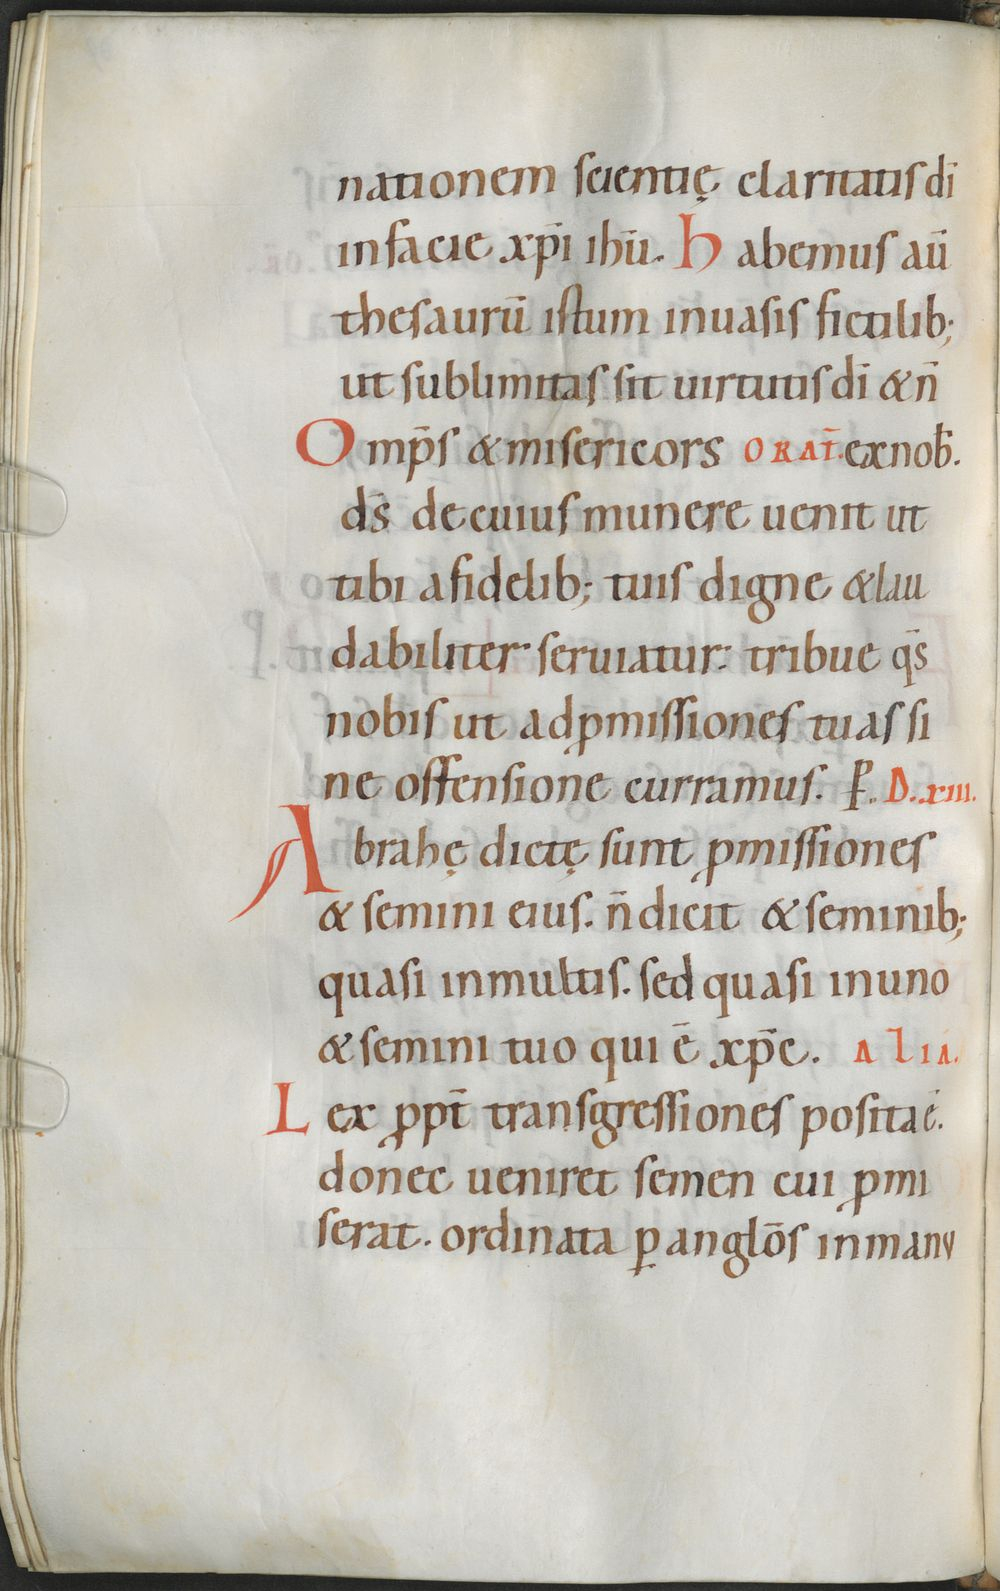 nationem scientię claritatis dī
infacie xp̄i ihū. habemus aū
thesaurū istum inuasis fictilib;
ut sublimitas sit uirtutis dī & n̄
Omp̄s & misericors ORAT̄. ex nob̄.
ds̄ decuius munere uenit ut
tibi afidelib; tuis digne & lau
dabiliter seruiatur: tribue qs̄
nobis ut adꝓmissiones tuas si
ne offensione curramus. P. D. xiii.
Abrahę dictę sunt ꝓmissiones
& semini eius. n̄ dicit & seminib;
quasi inmultis. sed quasi inuno
& semini tuo qui ē xp̄c. ALIA.
Lex ꝓpt̄ transgressiones posita ē.
donec ueniret semen cui ꝓmi
serat. ordinata ꝑ anglōs inmanu